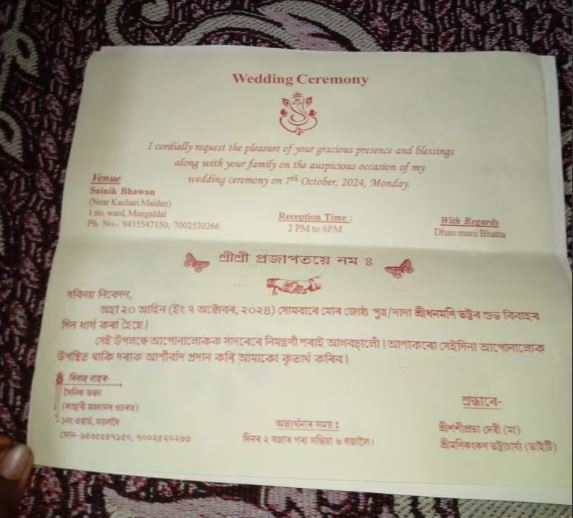 Wedding Ceremony
I cordially request the pleasure of your gracious presence and blessings
along with your family on the auspicious occasion of my
wedding ceremony on 7th October, 2024, Monday.
Venue
Sainik Bhawan
(Near Kachari Maidan)
1 no. ward, Mangaldai
Ph. No.- 9435547150, 7002520266
Reception Time :
2 PM to 6PM
With Regards
Dhan mani Bhatta
শ্ৰীশ্ৰী প্ৰজাপতয়ে নম ঃ
সবিনয় নিবেদন,
অহা ২০ আহিন (ইং ৭ অক্টোবৰ, ২০২৪) সোমবাৰে মোৰ জ্যেষ্ঠ পুত্ৰ/দাদা শ্ৰীধনমণি ভট্টৰ শুভ বিবাহৰ
দিন ধাৰ্য কৰা হৈছে।
সেই উপলক্ষে আপোনালোকক সাদৰেৰে নিমন্ত্ৰণী পৰাই আগবঢ়ালোঁ। আশাকৰো সেইদিনা আপোনালোক
উপস্থিত থাকি দৰাক আশীৰ্বাদ প্ৰদান কৰি আমাকো কৃতাৰ্থ কৰিব।
বিবাহ বাহৰ-
সৈনিক ভৱন
(কাছাৰী ময়দানৰ ওচৰত)
১নং ওৱাৰ্ড, মঙলদৈ
ফোন-৯৪৩৫৫৪৭১৫০, ৭০০২৫২০২৬৬
অভ্যৰ্থনাৰ সময় ঃ
দিনৰ ২ বজাৰ পৰা সন্ধিয়া ৬ বজালৈ।
শ্ৰদ্ধাৰে-
শ্ৰীশশীপ্ৰভা দেৱী (মা)
শ্ৰীমণিকংকণ ভট্টাচাৰ্য্য (ভাইটি)